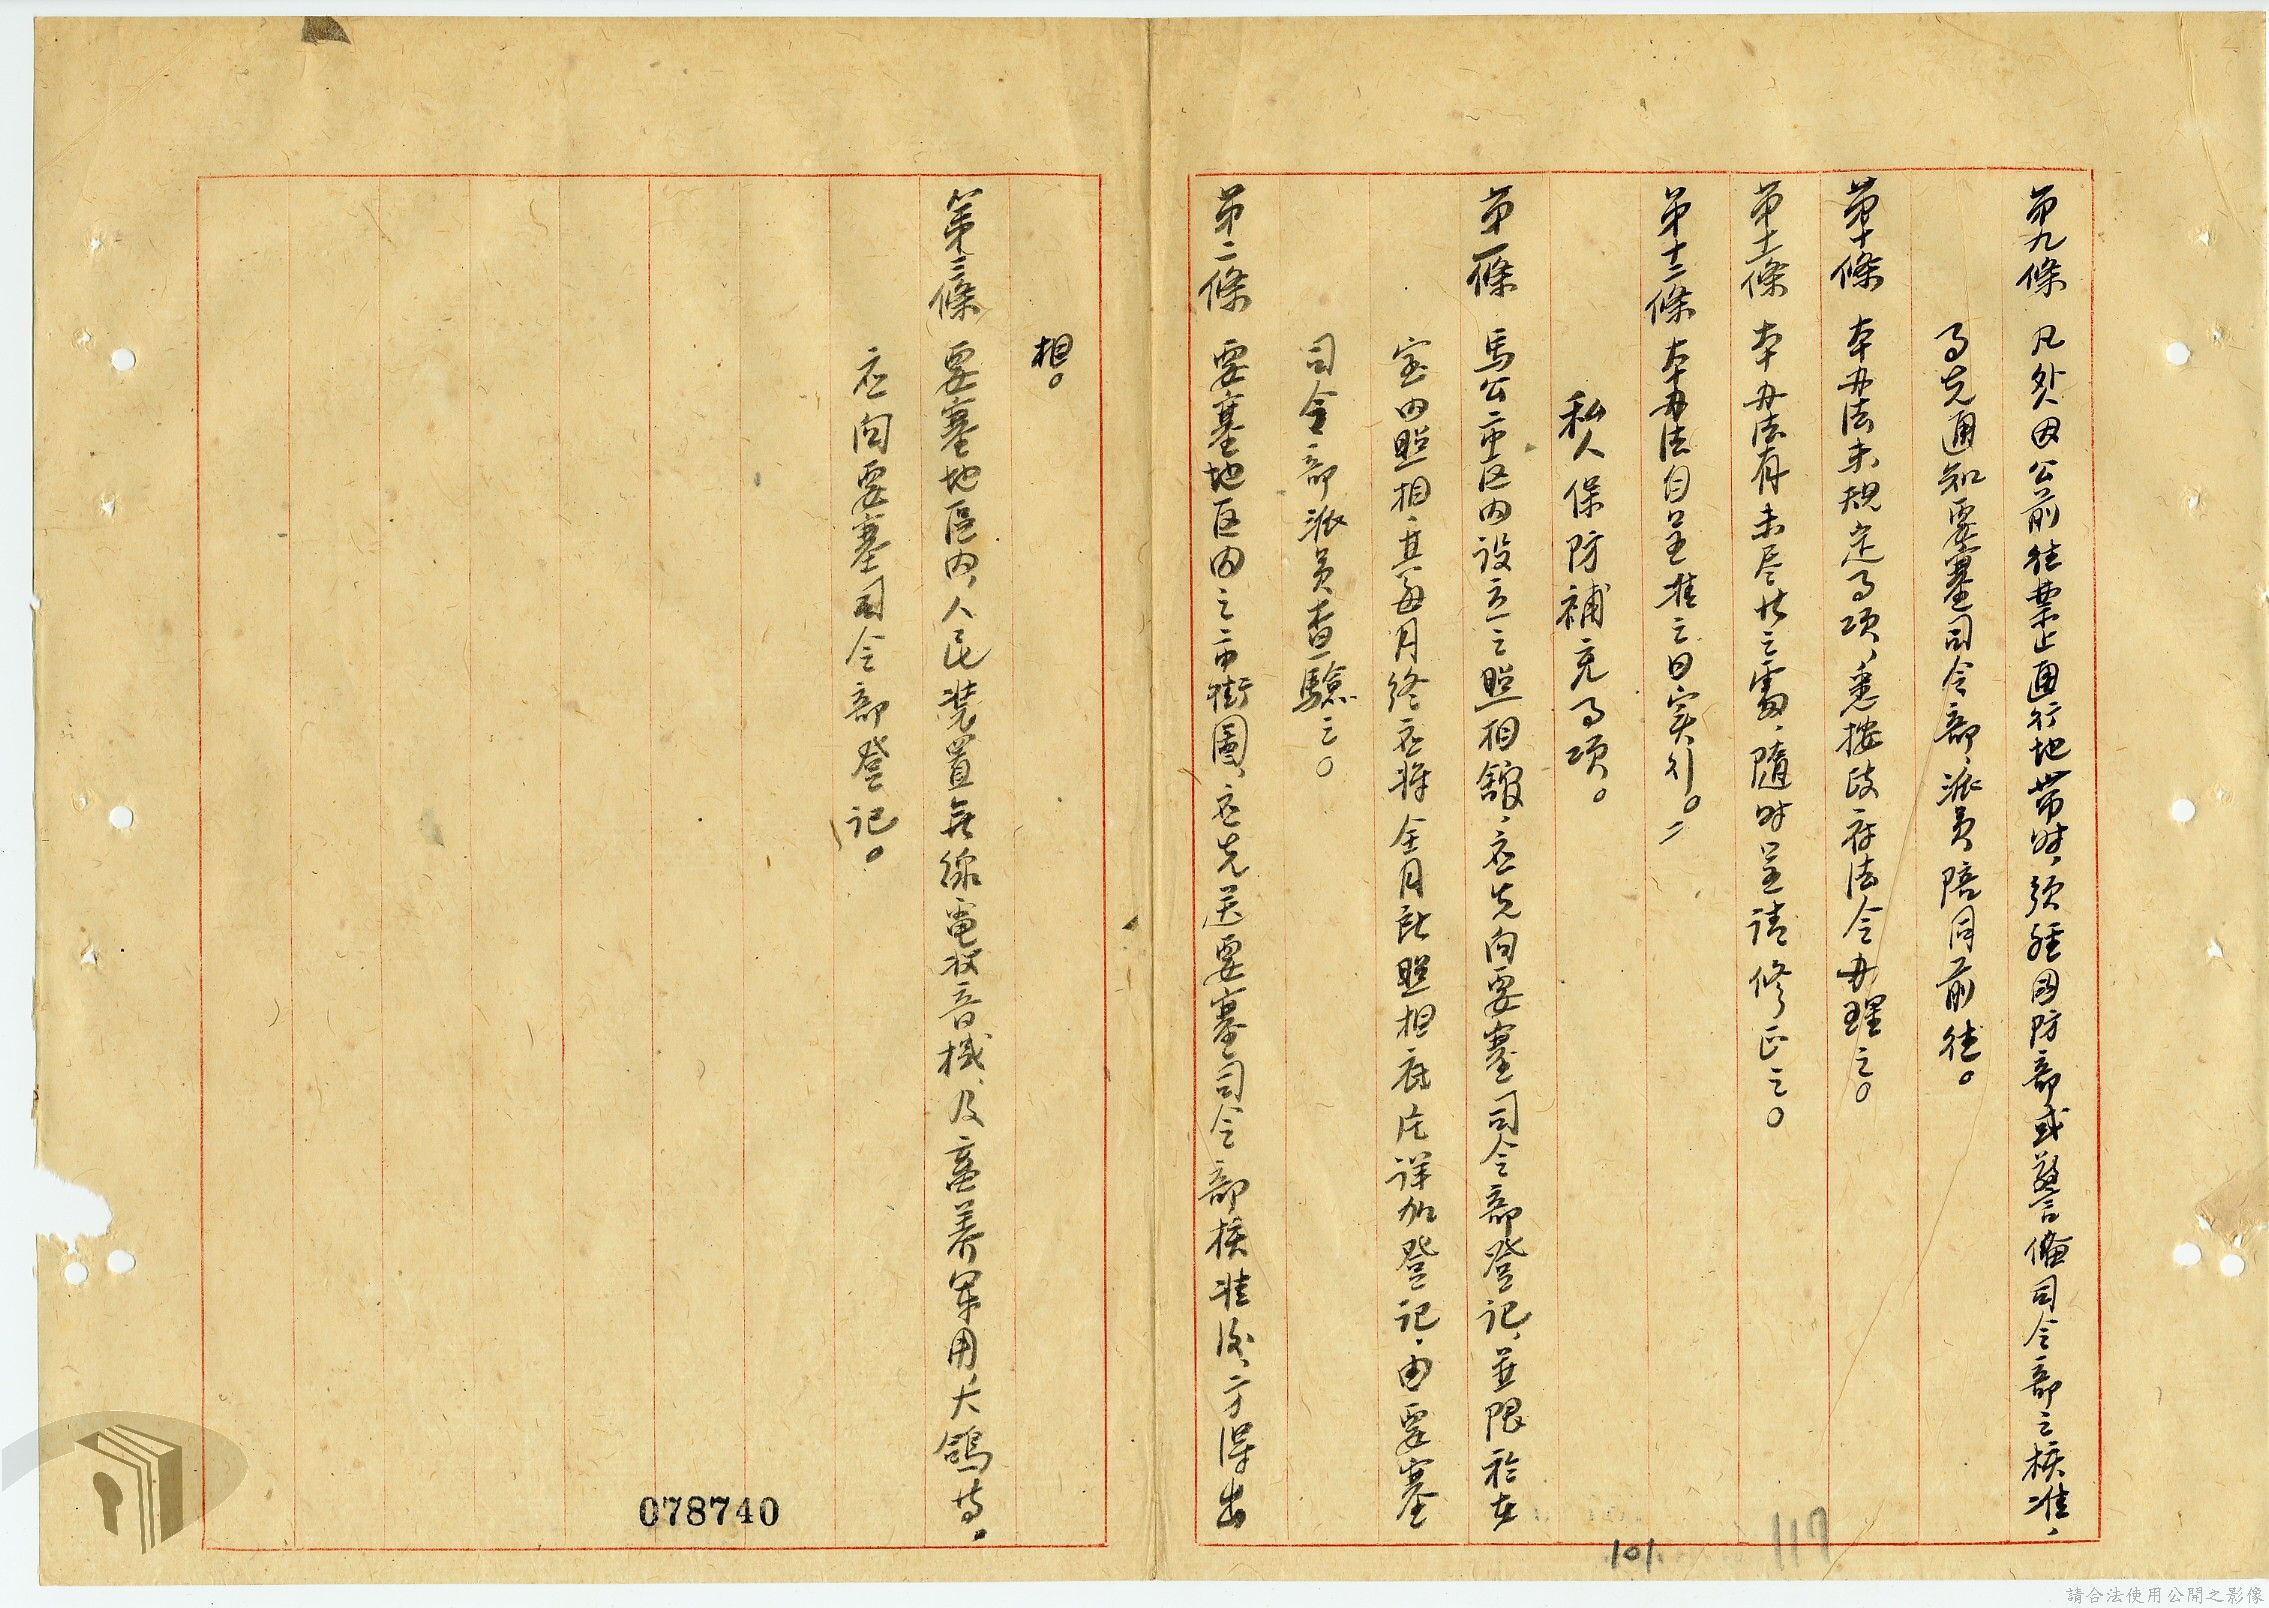 第九條 凡外人因公前往禁止通行地帶时，須經国防部或警備司令部之核准，
事先通知要塞司令部，派員陪同前往。
第十條 本办法未規定事項，悉按政府法令办理之。
第十一條 本办法有未尽善之處，隨时呈請修正之。
第十二條 本办法自呈准之日实行。
私人保防補充事項。
第一條 馬公市区内设立之照相舘，应先向要塞司令部登记，並限於在
室内照相，其每月終应将全月所照相底片详加登记，由要塞
司令部派員查驗之。
第二條 要塞地区内之市街圖，应先送要塞司令部核准後，方得出
相。
第三條 要塞地區内，人民装置無線電收音機，及畜养軍用犬鴿等。
应向要塞司令部登记。
078740
101
117
請合法使用公開之影像